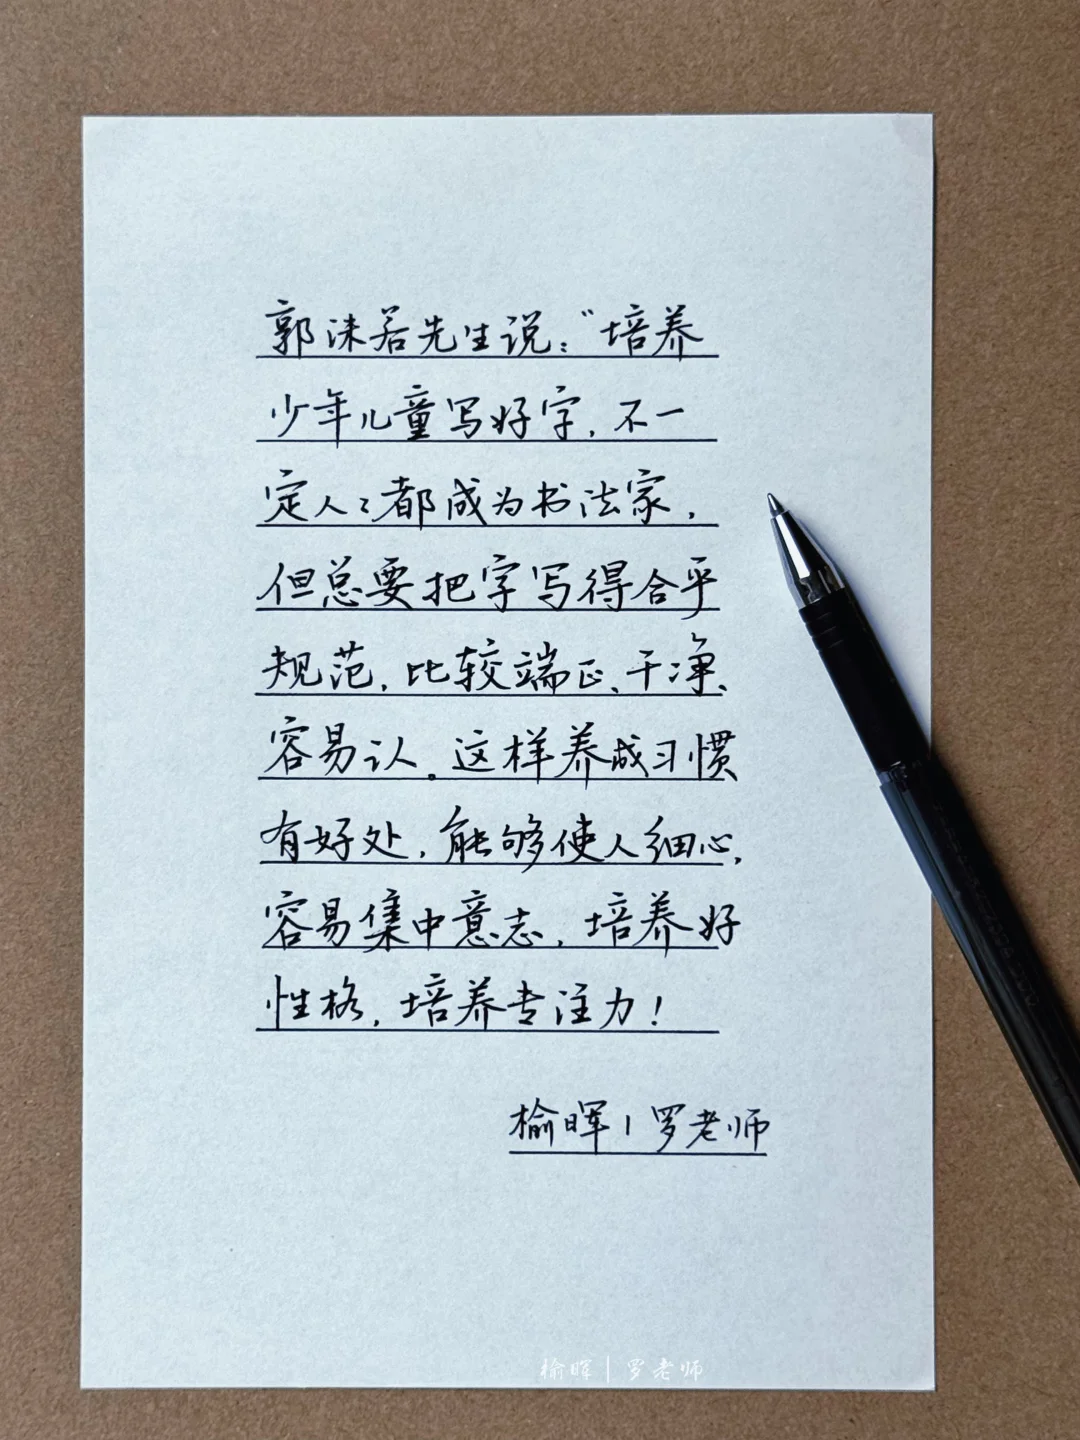 郭沫若先生说：“培养
少年儿童写好字，不一
定人々都成为书法家，
但总要把字写得合乎
规范，比较端正、干净、
容易认。这样养成习惯
有好处，能够使人细心，
容易集中意志，培养好
性格，培养专注力！
榆晖|罗老师
榆晖|罗老师